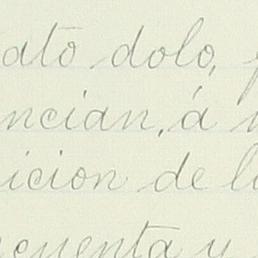 ato dolo,
ncian, á
icion de l
cuenta y